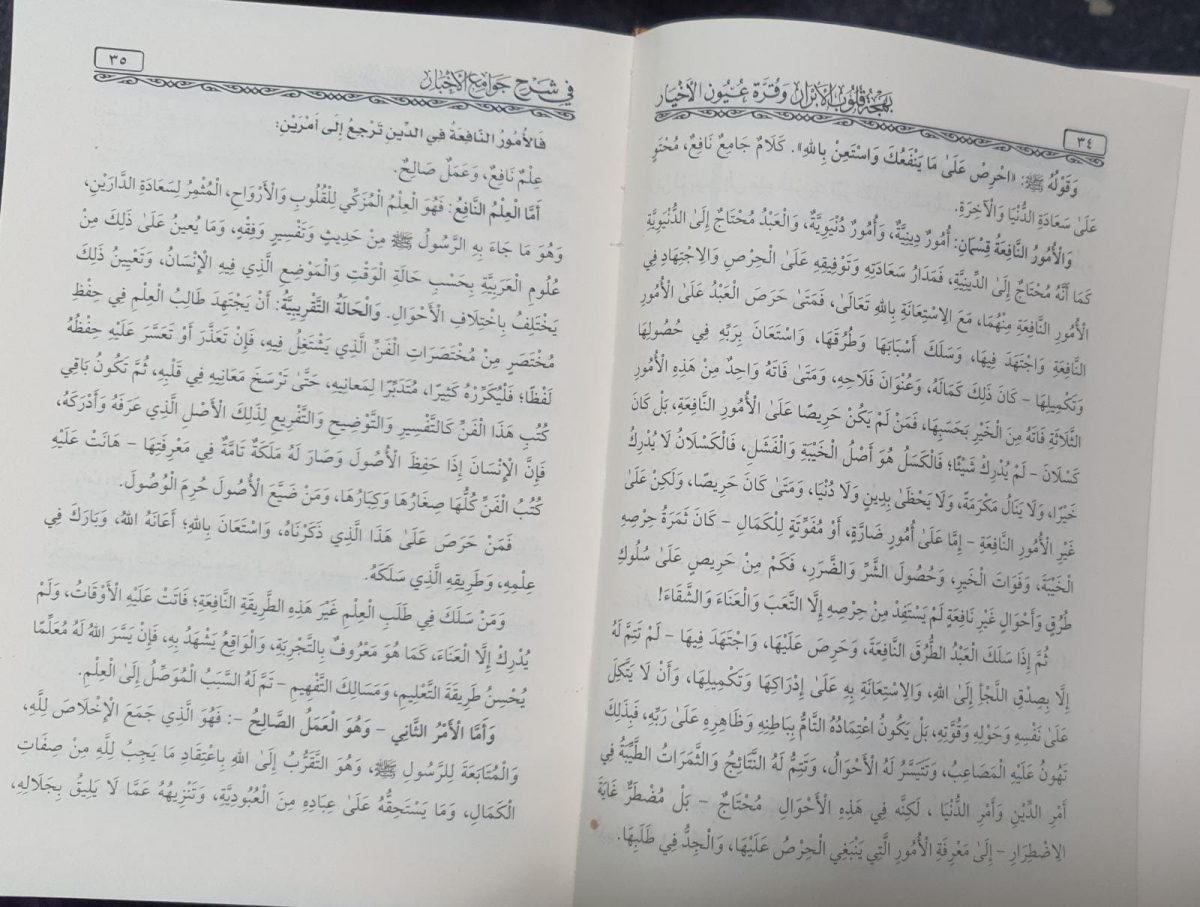 بَهْجَةُ قُلُوبِ الْأَبْرَارِ وَقُرَّةُ عُيُونِ الْأَخْيَارِ
٣٤
وَقَوْلُهُ ﷺ: «احْرِصْ عَلَىٰ مَا يَنْفَعُكَ وَاسْتَعِنْ بِاللهِ». كَلَامٌ جَامِعٌ نَافِعٌ، مُحْتَوٍ
عَلَىٰ سَعَادَةِ الدُّنْيَا وَالْآخِرَةِ.
وَالْأُمُورُ النَّافِعَةُ قِسْمَانِ: أُمُورٌ دِينِيَّةٌ، وَأُمُورٌ دُنْيَوِيَّةٌ، وَالْعَبْدُ مُحْتَاجٌ إِلَىٰ الدُّنْيَوِيَّةِ
كَمَا أَنَّهُ مُحْتَاجٌ إِلَىٰ الدِّينِيَّةِ، فَمَدَارُ سَعَادَتِهِ وَتَوْفِيقِهِ عَلَىٰ الْحِرْصِ وَالِاجْتِهَادِ فِي
الْأُمُورِ النَّافِعَةِ مِنْهُمَا، مَعَ الِاسْتِعَانَةِ بِاللهِ تَعَالَىٰ، فَمَتَىٰ حَرَصَ الْعَبْدُ عَلَىٰ الْأُمُورِ
النَّافِعَةِ وَاجْتَهَدَ فِيهَا، وَسَلَكَ أَسْبَابَهَا وَطُرُقَهَا، وَاسْتَعَانَ بِرَبِّهِ فِي حُصُولِهَا
وَتَكْمِيلِهَا – كَانَ ذَلِكَ كَمَالَهُ، وَعُنْوَانَ فَلَاحِهِ، وَمَتَىٰ فَاتَهُ وَاحِدٌ مِنْ هَذِهِ الْأُمُورِ
الثَّلَاثَةِ فَاتَهُ مِنَ الْخَيْرِ بِحَسَبِهَا، فَمَنْ لَمْ يَكُنْ حَرِيصًا عَلَىٰ الْأُمُورِ النَّافِعَةِ، بَلْ كَانَ
كَسْلَانَ – لَمْ يُدْرِكْ شَيْئًا؛ فَالْكَسَلُ هُوَ أَصْلُ الْخَيْبَةِ وَالْفَشَلِ، فَالْكَسْلَانُ لَا يُدْرِكُ
خَيْرًا، وَلَا يَنَالُ مَكْرَمَةً، وَلَا يَحْظَىٰ بِدِينٍ وَلَا دُنْيَا، وَمَتَىٰ كَانَ حَرِيصًا، وَلَكِنْ عَلَىٰ
غَيْرِ الْأُمُورِ النَّافِعَةِ – إِمَّا عَلَىٰ أُمُورٍ ضَارَّةٍ، أَوْ مُفَوِّتَةٍ لِلْكَمَالِ – كَانَ ثَمَرَةُ حِرْصِهِ
الْخَيْبَةَ، وَفَوَاتَ الْخَيرِ، وَحُصُولَ الشَّرِّ وَالضَّرَرِ، فَكَمْ مِنْ حَرِيصٍ عَلَىٰ سُلُوكِ
طُرُقٍ وَأَحْوَالٍ غَيْرِ نَافِعَةٍ لَمْ يَسْتَفِدْ مِنْ حِرْصِهِ إِلَّا التَّعَبَ وَالْعَنَاءَ وَالشَّقَاءَ!
ثُمَّ إِذَا سَلَكَ الْعَبْدُ الطُّرُقَ النَّافِعَةَ، وَحَرِصَ عَلَيْهَا، وَاجْتَهَدَ فِيهَا – لَمْ تَتِمَّ لَهُ
إِلَّا بِصِدْقِ اللَّجَأِ إِلَىٰ اللهِ، وَالِاسْتِعَانَةِ بِهِ عَلَىٰ إِدْرَاكِهَا وَتَكْمِيلِهَا، وَأَنْ لَا يَتَّكِلَ
عَلَىٰ نَفْسِهِ وَحَوْلِهِ وَقُوَّتِهِ، بَلْ يَكُونُ اعْتِمَادُهُ التَّامُّ بِبَاطِنِهِ وَظَاهِرِهِ عَلَىٰ رَبِّهِ، فَبِذَلِكَ
تَهُونُ عَلَيْهِ الْمَصَاعِبُ، وَتَتَيَسَّرُ لَهُ الْأَحْوَالُ، وَتَتِمُّ لَهُ النَّتَائِجُ وَالثَّمَرَاتُ الطَّيِّبَةُ فِي
أَمْرِ الدِّيْنِ وَأَمْرِ الدُّنْيَا ، لَكِنَّه فِي هَذِهِ الْأَحْوَالِ مُحْتَاجٌ – بَلْ مُضْطَرٌّ غَايَةَ
الِاضْطِرَارِ – إِلَىٰ مَعْرِفَةِ الْأُمُورِ الَّتِي يَنْبَغِي الْحِرْصُ عَلَيْهَا، وَالْجِدُّ فِي طَلَبِهَا.
فِي شَرْحِ جَوَامِعِ الْأَخْبَارِ
٣٥
فَالأُمُورُ النَّافِعَةُ فِي الدِّينِ تَرْجِعُ إِلَى أَمْرَيْنِ:
عِلْمٌ نَافِعٌ، وَعَمَلٌ صَالِحٌ.
أَمَّا الْعِلْمُ النَّافِعُ: فَهُوَ الْعِلْمُ الْمُزَكِّي لِلْقُلُوبِ وَالْأَرْوَاحِ، الْمُثْمِرُ لِسَعَادَةِ الدَّارَيْنِ،
وَهُوَ مَا جَاءَ بِهِ الرَّسُولُ ﷺ مِنْ حَدِيثٍ وَتَفْسِيرٍ وَفِقْهٍ، وَمَا يُعِينُ عَلَىٰ ذَلِكَ مِنْ
عُلُومِ الْعَرَبِيَّةِ بِحَسْبِ حَالَةِ الْوَقْتِ وَالْمَوْضِعِ الَّذِي فِيهِ الْإِنْسَانُ، وَتَعْيِينُ ذَلِكَ
يَخْتَلِفُ بِاخْتِلَافِ الْأَحْوَالِ. وَالْحَالَةُ التَّقْرِيبِيَّةُ: أَنْ يَجْتَهِدَ طَالِبُ الْعِلْمِ فِي حِفْظِ
مُخْتَصَرٍ مِنْ مُخْتَصَرَاتِ الْفَنِّ الَّذِي يَشْتَغِلُ فِيهِ، فَإِنْ تَعَذَّرَ أَوْ تَعَسَّرَ عَلَيْهِ حِفْظُهُ
لَفْظًا؛ فَلْيُكَرِّرْهُ كَثِيرًا، مُتَدَبِّرًا لِمَعَانِيهِ، حَتَّىٰ تَرْسَخَ مَعَانِيهِ فِي قَلْبِهِ، ثُمَّ تَكُونُ بَاقِي
كُتُبِ هَذَا الْفَنِّ كَالتَّفْسِيرِ وَالتَّوْضِيحِ وَالتَّفْرِيعِ لِذَلِكَ الْأَصْلِ الَّذِي عَرَفَهُ وَأَدْرَكَهُ،
فَإِنَّ الْإِنْسَانَ إِذَا حَفِظَ الْأُصُولَ وَصَارَ لَهُ مَلَكَةٌ تَامَّةٌ فِي مَعْرِفَتِهَا – هَانَتْ عَلَيْهِ
كُتُبُ الْفَنِّ كُلُّهَا صِغَارُهَا وَكِبَارُهَا، وَمَنْ ضَيَّعَ الْأُصُولَ حُرِمَ الْوُصُولَ.
فَمَنْ حَرَصَ عَلَىٰ هَذَا الَّذِي ذَكَرْنَاهُ، وَاسْتَعَانَ بِاللهِ؛ أَعَانَهُ اللهُ، وَبَارَكَ فِي
عِلْمِهِ، وَطَرِيقِهِ الَّذِي سَلَكَهُ.
وَمَنْ سَلَكَ فِي طَلَبِ الْعِلْمِ غَيْرَ هَذِهِ الطَّرِيقَةِ النَّافِعَةِ؛ فَاتَتْ عَلَيْهِ الْأَوْقَاتُ، وَلَمْ
يُدْرِكْ إِلَّا الْعَنَاءَ، كَمَا هُوَ مَعْرُوفٌ بِالتَّجْرِبَةِ، وَالْوَاقِعُ يَشْهَدُ بِهِ، فَإِنْ يَسَّرَ اللهُ لَهُ مُعَلِّمًا
يُحْسِنُ طَرِيقَةَ التَّعْلِيمِ، وَمَسَالِكَ التَّفْهِيمِ – تَمَّ لَهُ السَّبَبُ الْمُوَصِّلُ إِلَىٰ الْعِلْمِ.
وَأَمَّا الْأَمْرُ الثَّانِي – وَهُوَ الْعَمَلُ الصَّالِحُ –: فَهُوَ الَّذِي جَمَعَ الْإِخْلَاصَ لِلَّهِ،
وَالْمُتَابَعَةَ لِلرَّسُولِ ﷺ، وَهُوَ التَّقَرُّبُ إِلَىٰ اللهِ بِاعْتِقَادِ مَا يَجِبُ لِلَّهِ مِنْ صِفَاتِ
الْكَمَالِ، وَمَا يَسْتَحِقُّهُ عَلَىٰ عِبَادِهِ مِنَ الْعُبُودِيَّةِ، وَتَنْزِيهُهُ عَمَّا لَا يَلِيقُ بِجَلَالِهِ،